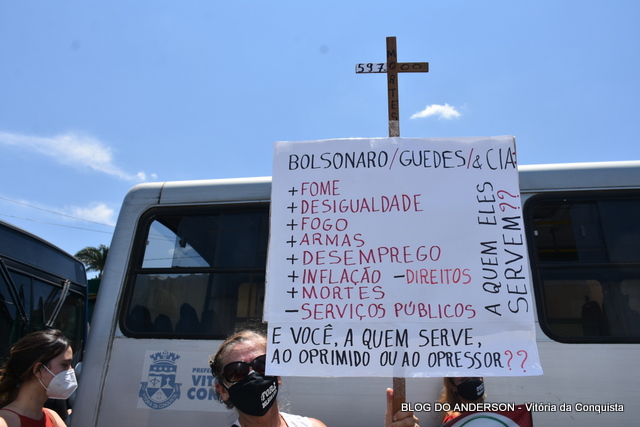 597000
MORTES
BOLSONARO/GUEDES/&CIA
+FOME
+DESIGUALDADE
+FOGO
+ARMAS
+DESEMPREGO
+INFLAÇÃO -DIREITOS
+MORTES
-SERVIÇOS PÚBLICOS
A QUEM ELES
SERVEM??
E VOCÊ, A QUEM SERVE,
AO OPRIMIDO OU AO OPRESSOR??
BLOG DO ANDERSON - Vitória da Conquista